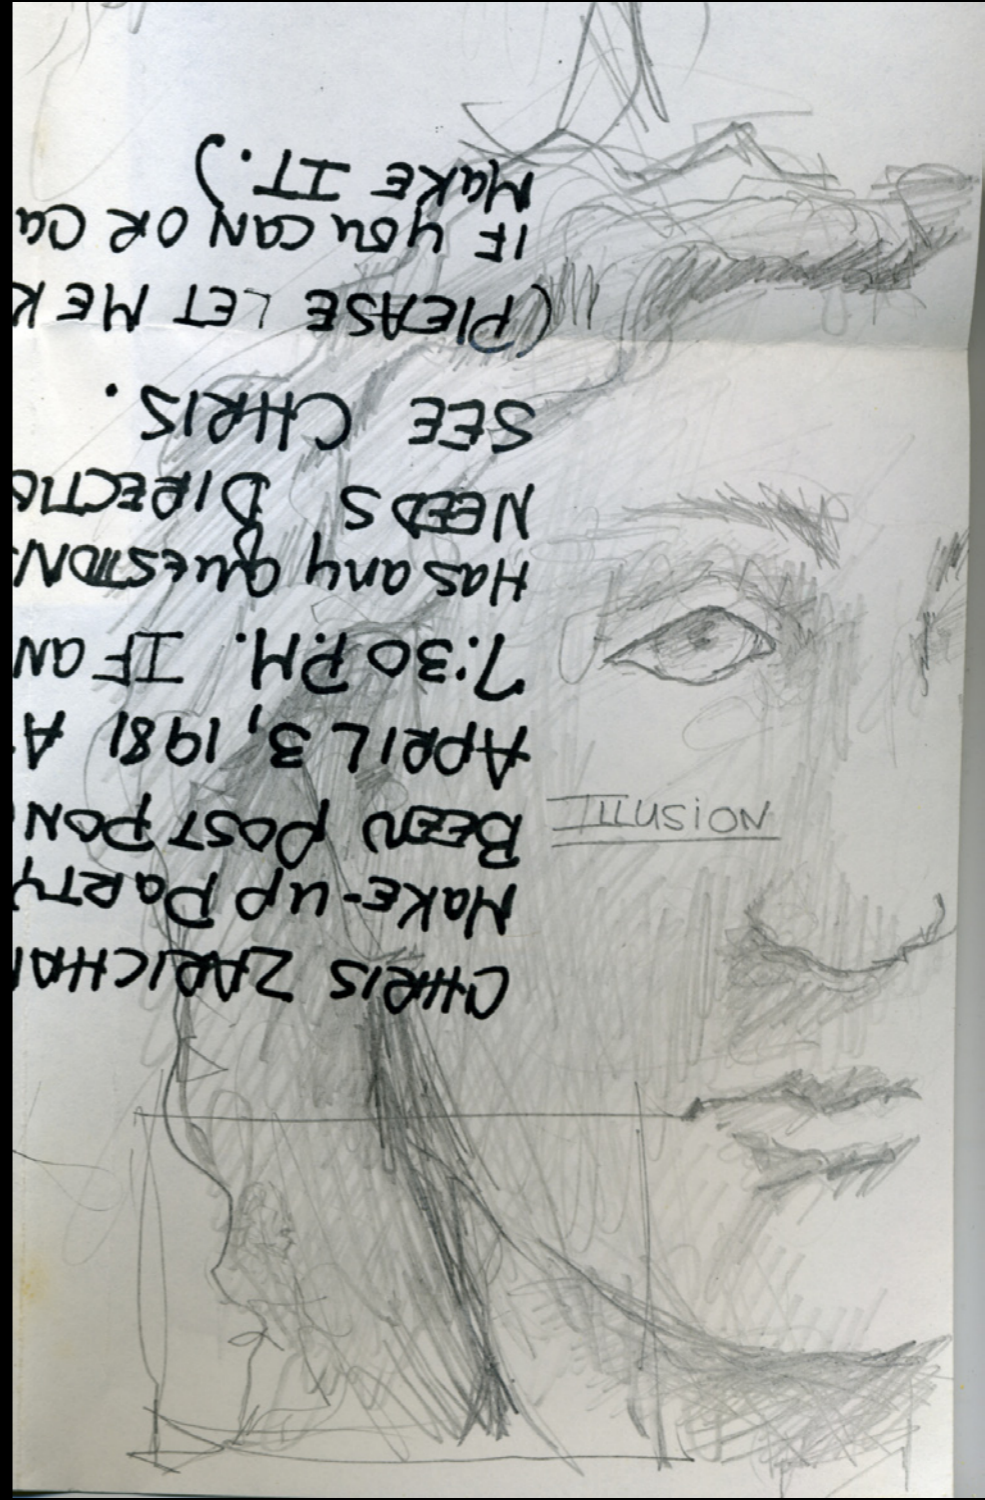 CHRIS ZARICHA
MaKE-UP PaRTY
BEEN POSTPON
APRIL 3, 1981 A
7:30 P.M. IF aN
Has any QuESTIONS
NEEDS DIRECTIO
SEE CHRIS.
(PLEASE LET ME K
IF you CaN OR Ca
MaKE IT.)
ILLUSiON